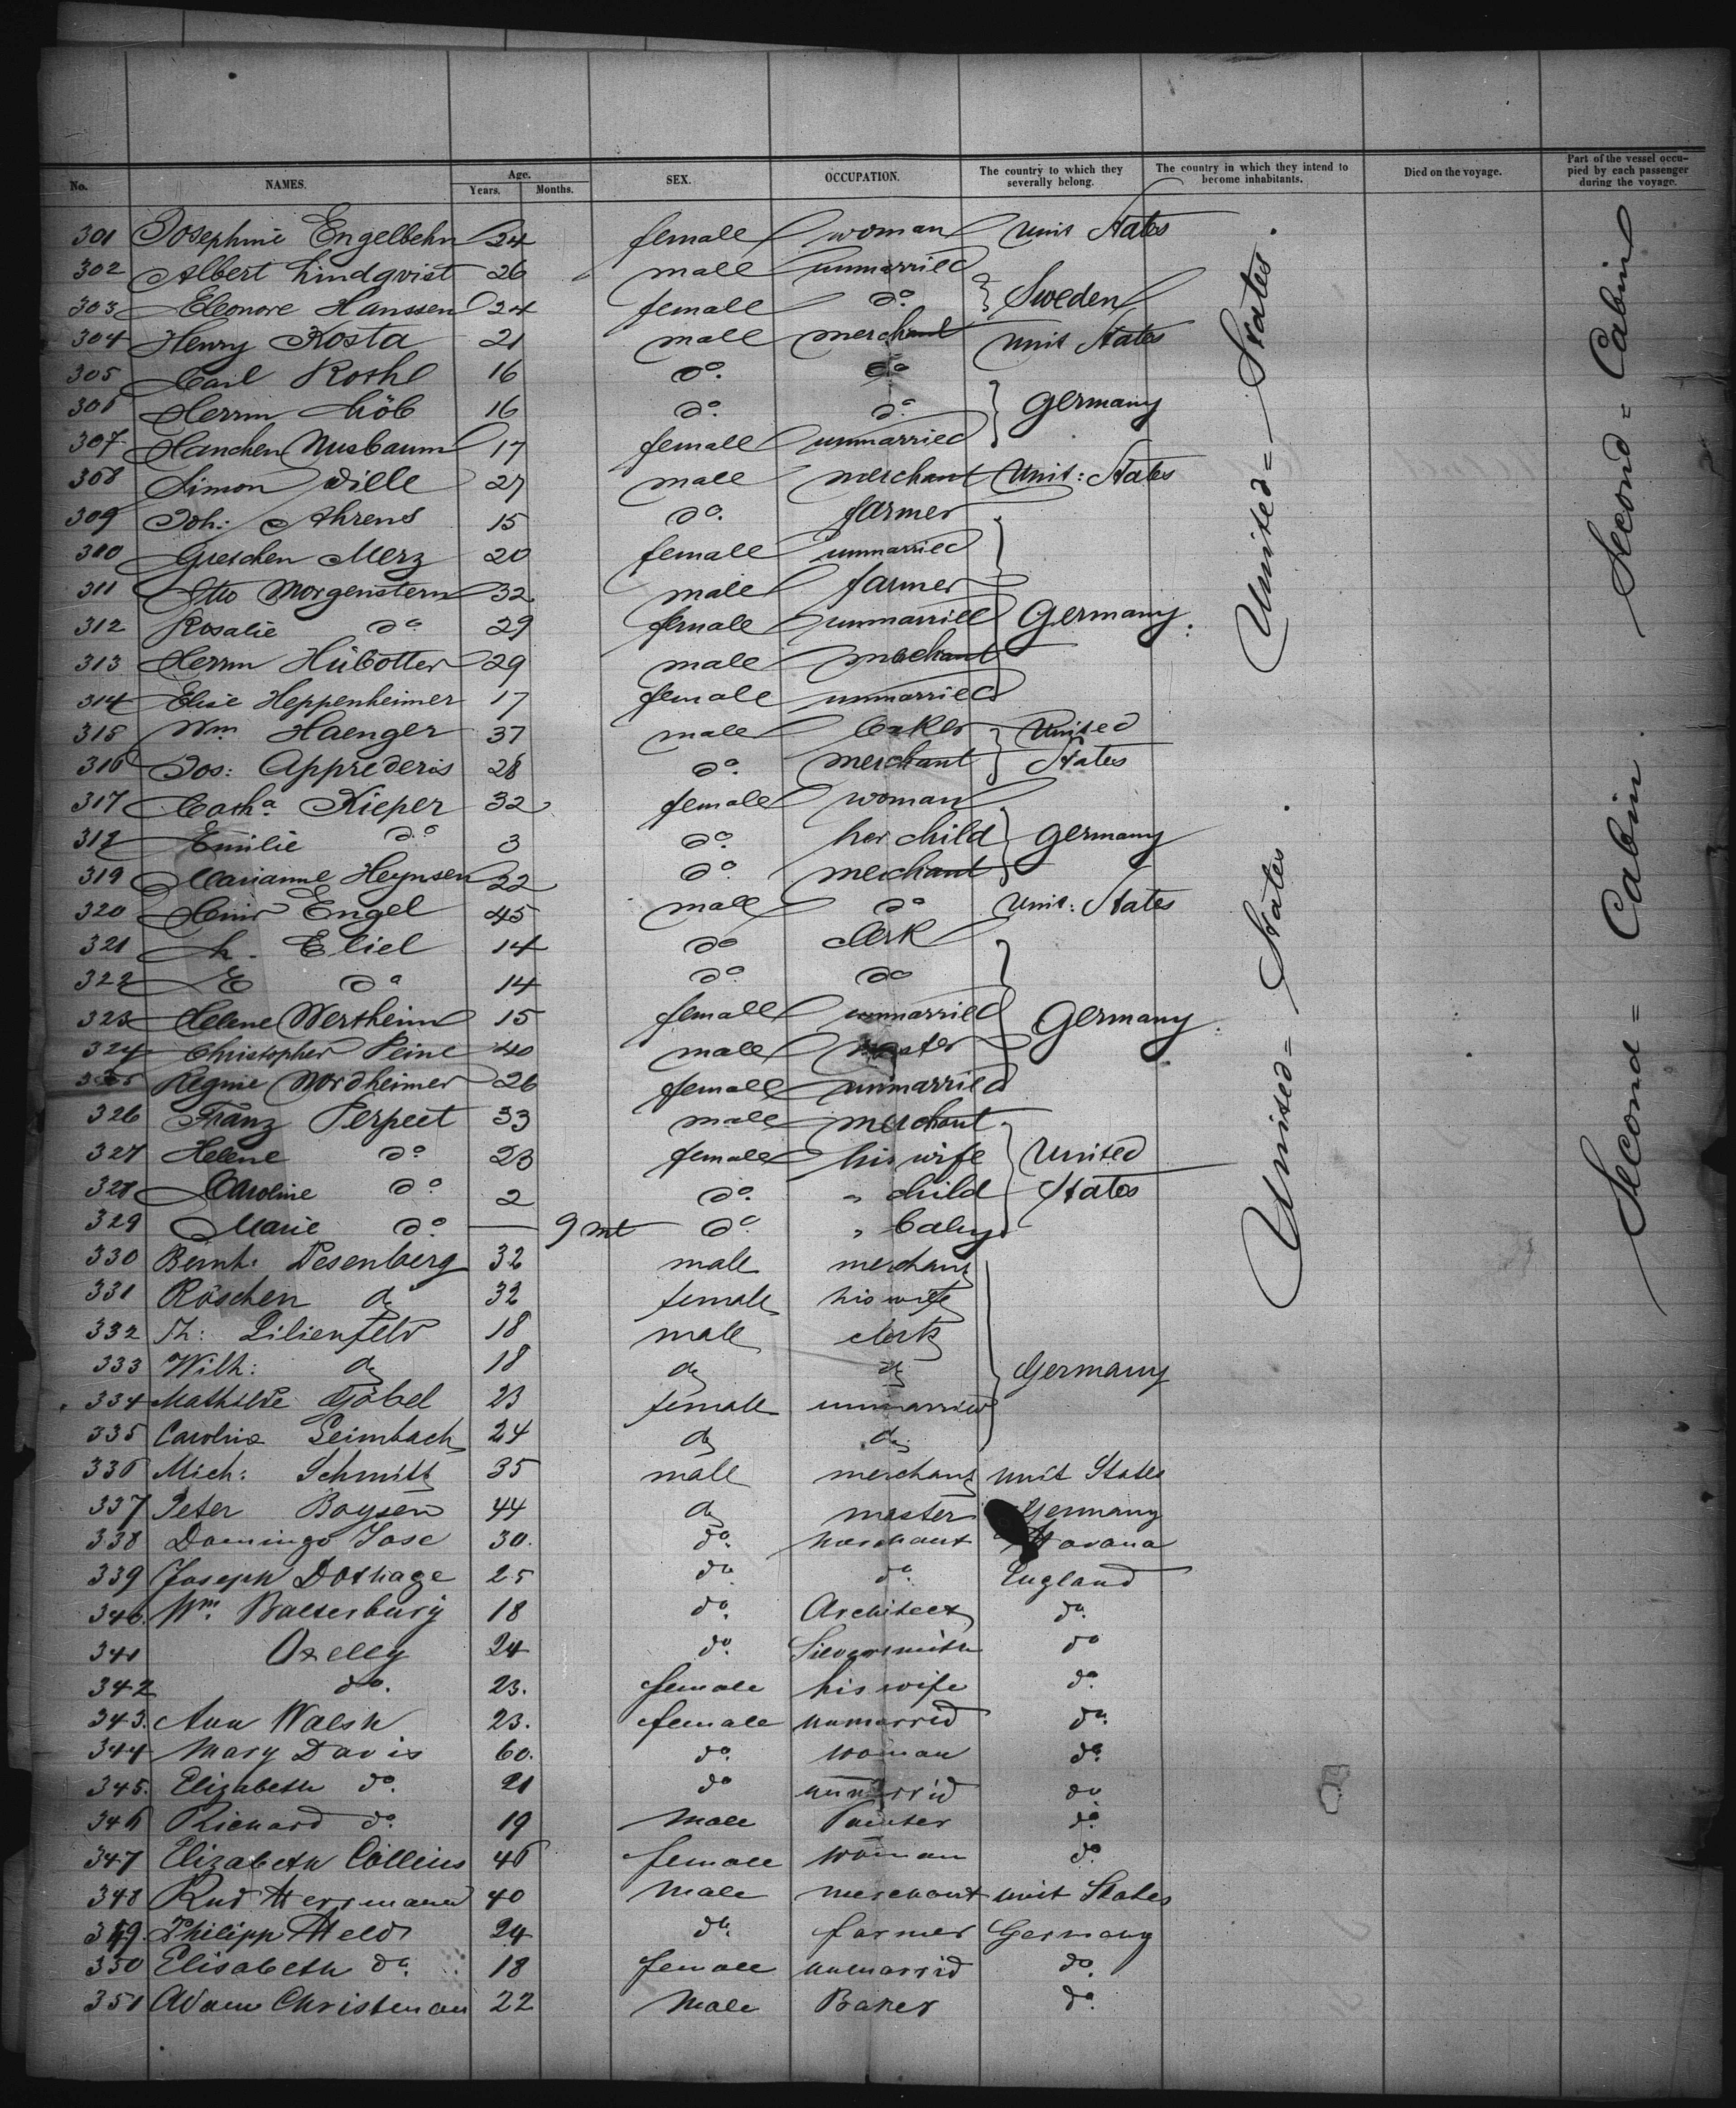 No. NAMES. Age. Years. Months. SEX. OCCUPATION. The country to which they severally belong. The country in which they intend to become inhabitants. Died on the voyage. Part of the vessel occupied by each passenger during the voyage.
301 Josephine Engelbehn 24 female woman Unit States
302 Albert Lindqvist 26 male unmarried
303 Eleonore Hanssen 24 female do. Sweden
304 Henry Kosta 21 male merchant Unit States
305 Carl Rothe 16 do. do
306 Herrm Löb 16 do. do. Germany
307 Hanchen Nusbaum 17 female unmarried
308 Simon Dille 27 male merchant Unit: States
309 Joh: Ahrens 15 do. farmer
310 Gretchen Merz 20 female unmarried
311 Otto Morgenstern 32 male farmer
312 Rosalie do 29 female unmarried Germany.
313 Herrm Hübotter 29 male merchant
314 Elise Heppenheimer 17 female unmarried
315 Wm Haenger 37 male baker United
316 Jos: Apprederis 28 do. merchant States
317 Catha Kieper 32 female woman
318 Emilie do 3 do. her child Germany
319 Marianne Heynsen 22 do. merchant
320 Heinr Engel 45 male do Unit: States
321 L. Eliel 14 do clerk
322 E do 14 do. do
323 Helene Wertheim 15 female unmarried Germany.
324 Christopher Peine 40 male
325 Regine Nordheimer 26 female unmarried
326 Franz Perpeet 33 male merchant
327 Helene do 23 female his wife United
328 Caroline do. 2 do. " child States
329 Marie do. — 9 mt do. " baby
330 Bernh: Desenberg 32 male merchant
331 Röschen do 32 female his wife
332 Th: Lilienfeld 18 male clerk
333 Wilh: do 18 do do Germany
334 Mathilde Göbel 23 female unmarried
335 Caroline Leimbach 24 do do
336 Mich: Schmitt 35 male merchant Unit States
337 Peter Boysen 44 do master Germany
338 Domingo Jose 30. do. merchant Havana
339 Joseph Dothage 25 do. do. England
340. Wm. Balterbury 18 do. Architect do.
341 Oxelly 24 do. Silversmith do
342 do. 23. female his wife do.
343. Ann Walsh 23. female unmarrid do.
344 Mary Davis 60. do. woman do.
345. Elizabeth do. 21 do unmarrid do
346 Richard do. 19 male Painter do.
347 Elizabeth Collins 46 female woman do.
348 Rud Herrmann 40 male merchant Unit States
349. Philipp Held 24 do. farmer Germany
350 Elisabeth do. 18 female unmarrid do.
351 Adam Christman 22 male Baker do.
United = States.
United = States.
Second = Cabin
Second = Cabin.